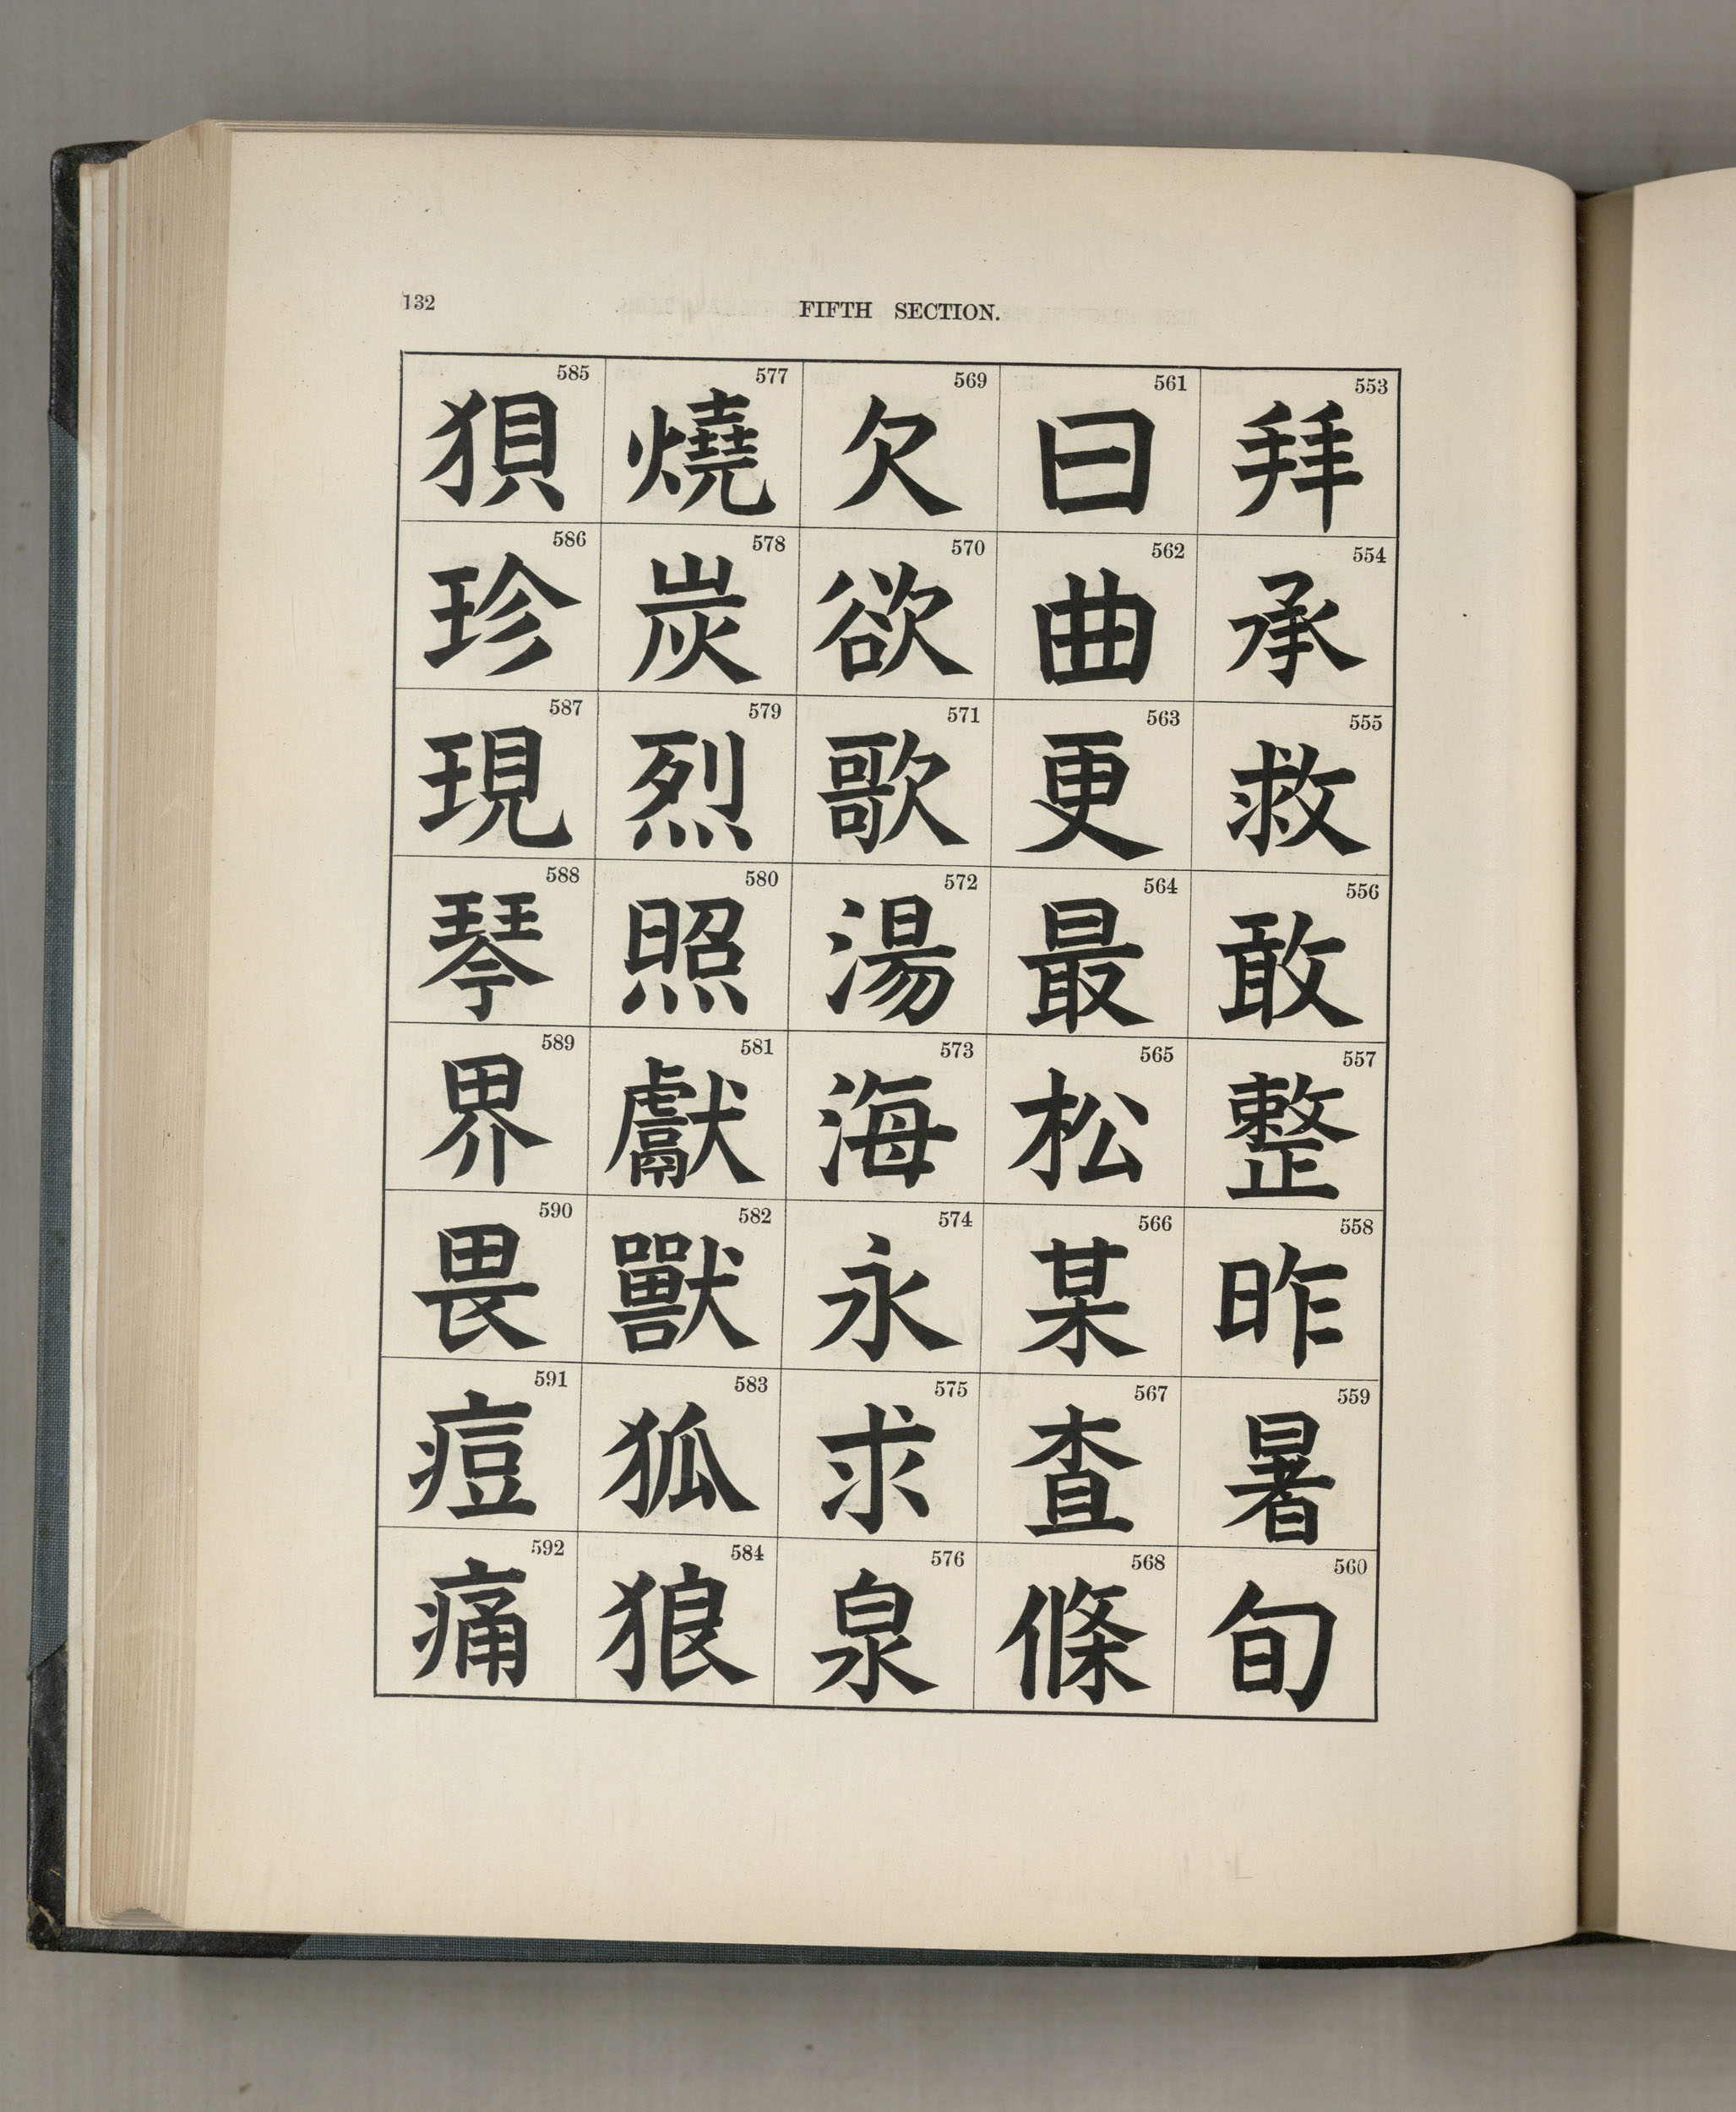 132
FIFTH SECTION.
553 拜
554 承
555 救
556 敢
557 整
558 昨
559 暑
560 旬
561 曰
562 曲
563 更
564 最
565 松
566 某
567 査
568 條
569 欠
570 欲
571 歌
572 湯
573 海
574 永
575 求
576 泉
577 燒
578 炭
579 烈
580 照
581 獻
582 獸
583 狐
584 狼
585 狽
586 珍
587 現
588 琴
589 界
590 畏
591 痘
592 痛